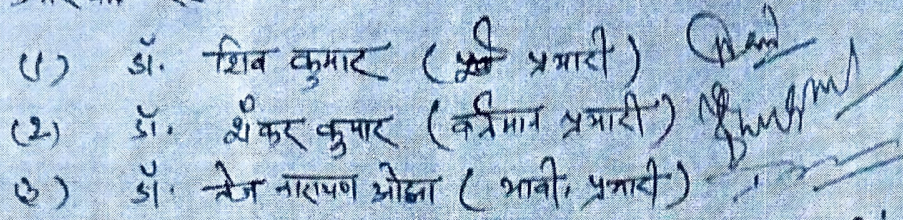 (1) डॉ. शिव कुमार (पूर्व प्रभारी)
(2) डॉ. शंकर कुमार (वर्तमान प्रभारी)
(3) डॉ. तेज नारायण ओझा (भावी, प्रभारी)